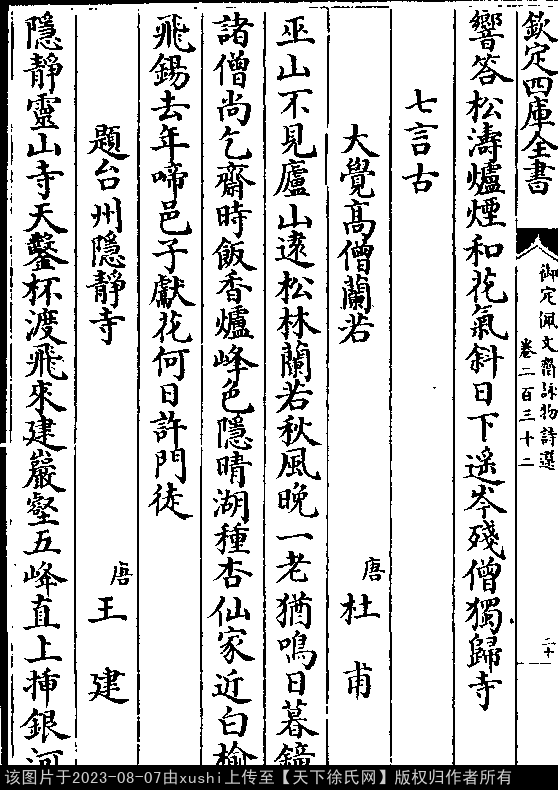 欽定四庫全書
御定佩文齋詠物詩選
卷二百三十二
二十
響答松濤爐煙和花氣斜日下遥岑殘僧獨歸寺
七言古
大覺高僧蘭若
唐
杜甫
巫山不見廬山逺松林蘭若秋風晚一老猶鳴日暮鐘
諸僧尚乞齋時飯香爐峰色隱晴湖種杏仙家近白榆
飛錫去年啼邑子獻花何日許門徒
題台州隱靜寺
唐
王建
隱靜靈山寺天鑿杯渡飛來建巖壑五峰直上揷銀河
该图片于2023-08-07由xushi上传至【天下徐氏网】版权归作者所有